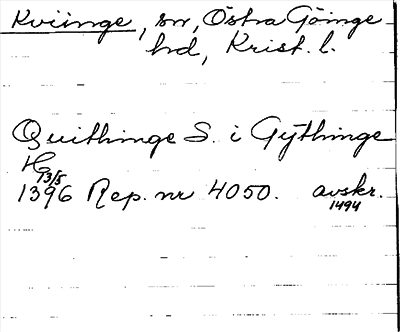 Kviinge, sn, Östra Göinge
hd, Krist. l.
Quithinge S. i Gythinge
Hg
13/5
1396 Rep. nr 4050. avskr.
1494